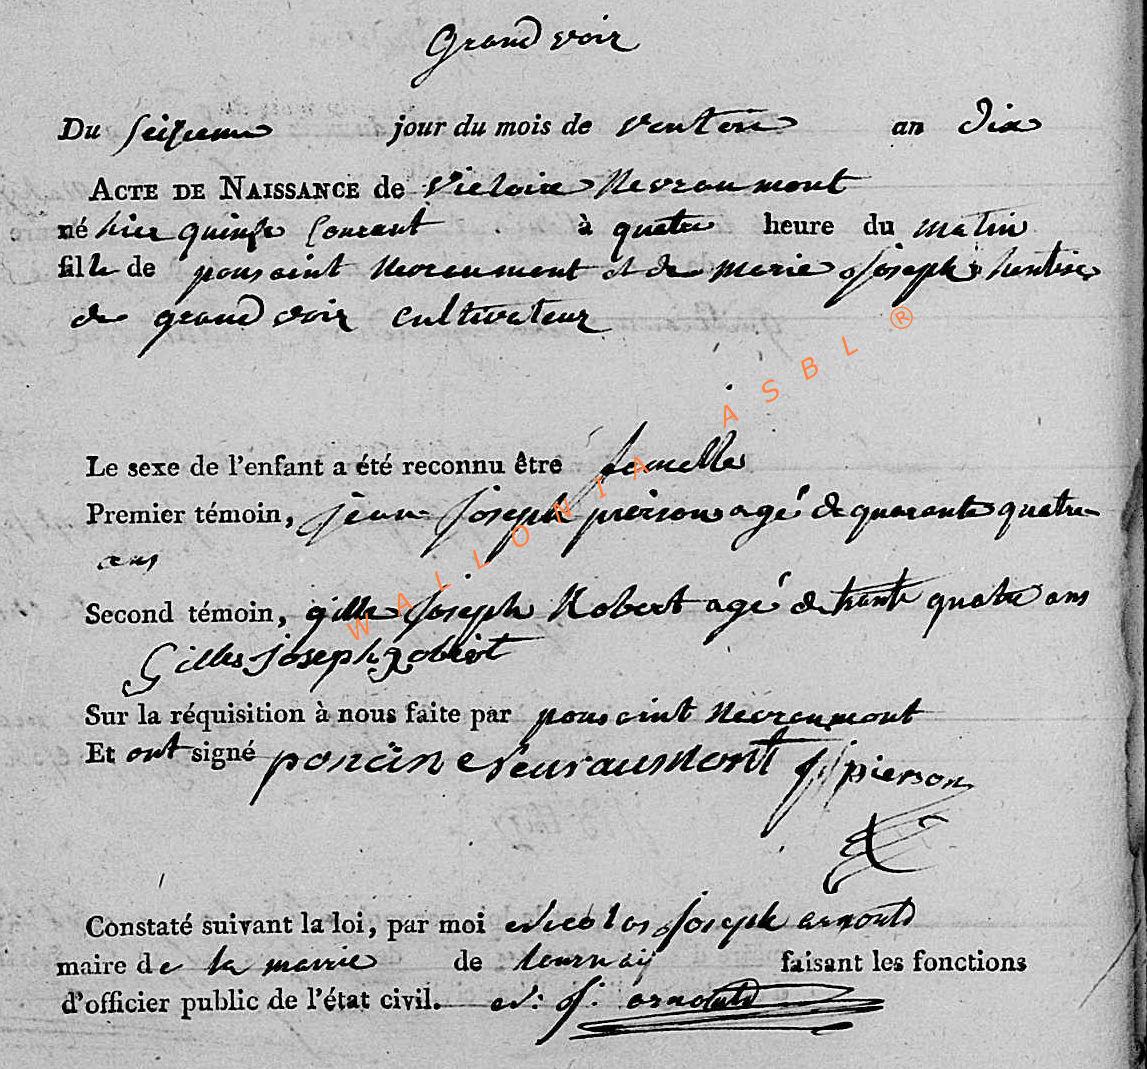 Grand voir
Du seizieme jour du mois de ventose an dix
ACTE DE NAISSANCE de victoire Nevraumont
né hier quinze Courant à quatre heure du matin
fille de ponsaint Nevraumont et de marie joseph hentire
de grand voir cultivateur
Le sexe de l'enfant a été reconnu être femelle
Premier témoin, jean joseph pierson agé de quarante quatre
ans
Second témoin, gille joseph Robert agé de trente quatre ans
Gilles joseph robert
Sur la réquisition à nous faite par ponsaint Nevraumont
Et ont signé poncin Neuraumont j j pierson
Constaté suivant la loi, par moi Nicolas joseph arnould
maire de la mairie de tournay faisant les fonctions
d'officier public de l'état civil. N: j. arnould
WALLONIA ASBL ®